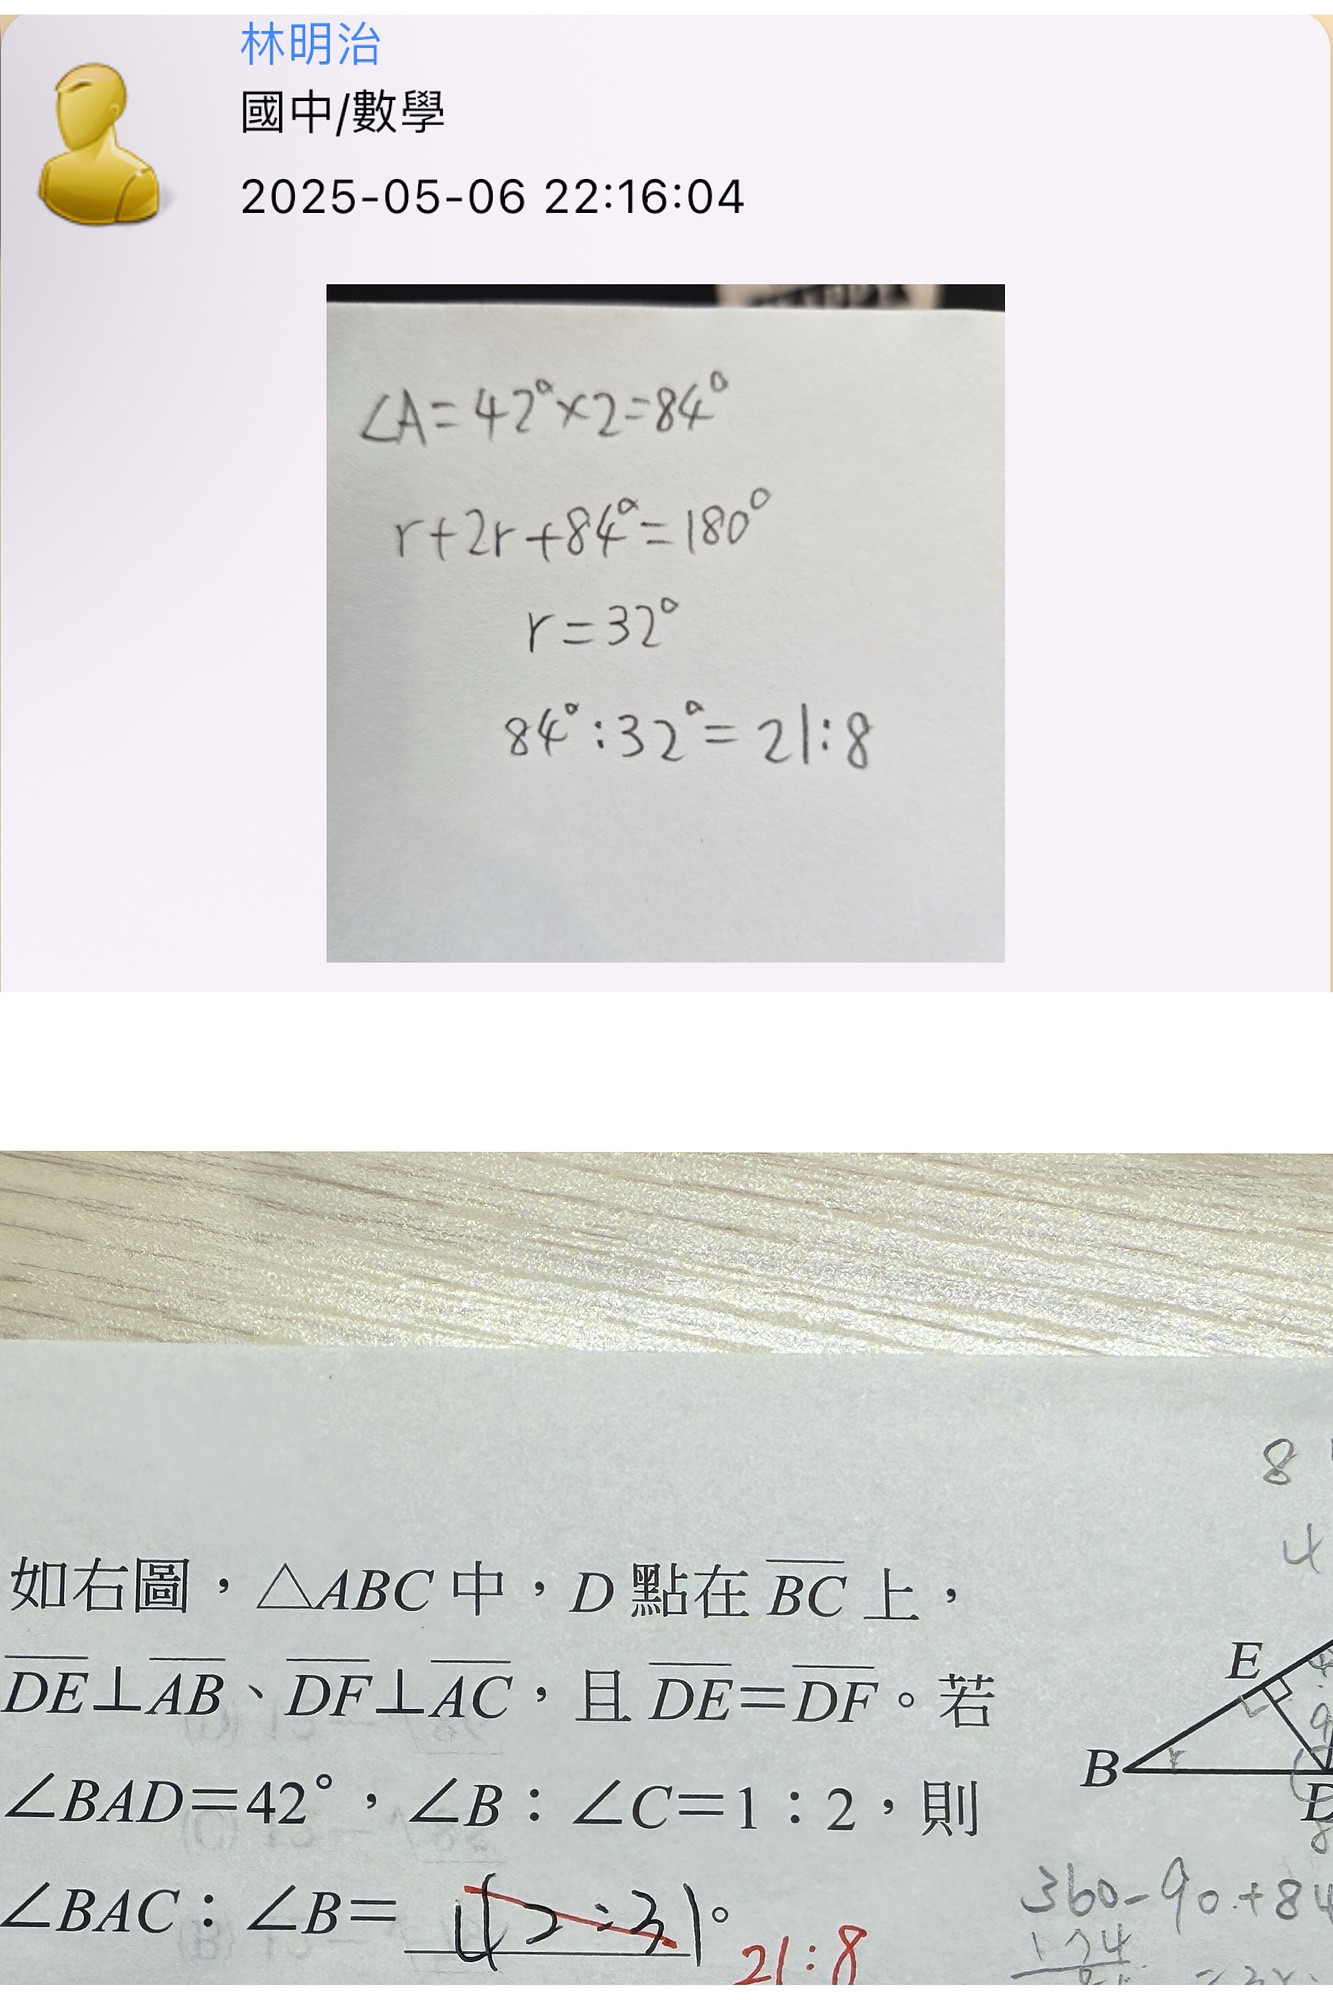 林明治
國中/數學
2025-05-06 22:16:04
∠A=42°×2=84°
r+2r+84°=180°
r=32°
84°:32°=21:8
8
4
如右圖，△ABC 中，D 點在 BC 上，
DE⊥AB、DF⊥AC，且 DE=DF。若
∠BAD=42°，∠B：∠C=1：2，則
∠BAC：∠B=
21:8
E
B
D
360-90+84
174